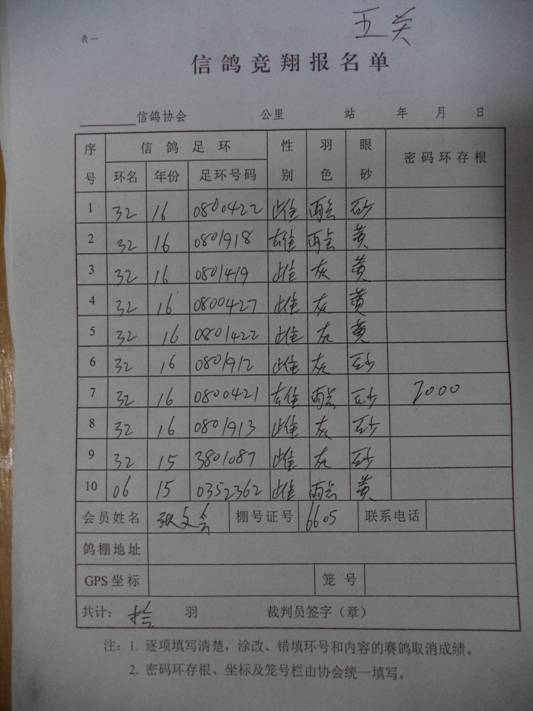 五关
表一
信鸽竞翔报名单
信鸽协会 公里 站 年 月 日
序号 信鸽足环 性别 羽色 眼砂 密码环存根
环名 年份 足环号码
1 32 16 0800422 雌 雨点 砂
2 32 16 0801918 雄 雨点 黄
3 32 16 0801419 雌 灰 黄
4 32 16 0800427 雌 灰 黄
5 32 16 0801422 雌 灰 黄
6 32 16 0801912 雌 灰 砂
7 32 16 0800421 雄 雨点 砂 2000
8 32 16 0801913 雌 灰 砂
9 32 15 3801087 雌 灰 砂
10 06 15 0352362 雌 雨点 黄
会员姓名 张文会 棚号证号 6605 联系电话
鸽棚地址
GPS坐标 笼号
共计: 拾 羽 裁判员签字（章）
注：1. 逐项填写清楚，涂改、错填环号和内容的赛鸽取消成绩。
2. 密码环存根、坐标及笼号栏由协会统一填写。